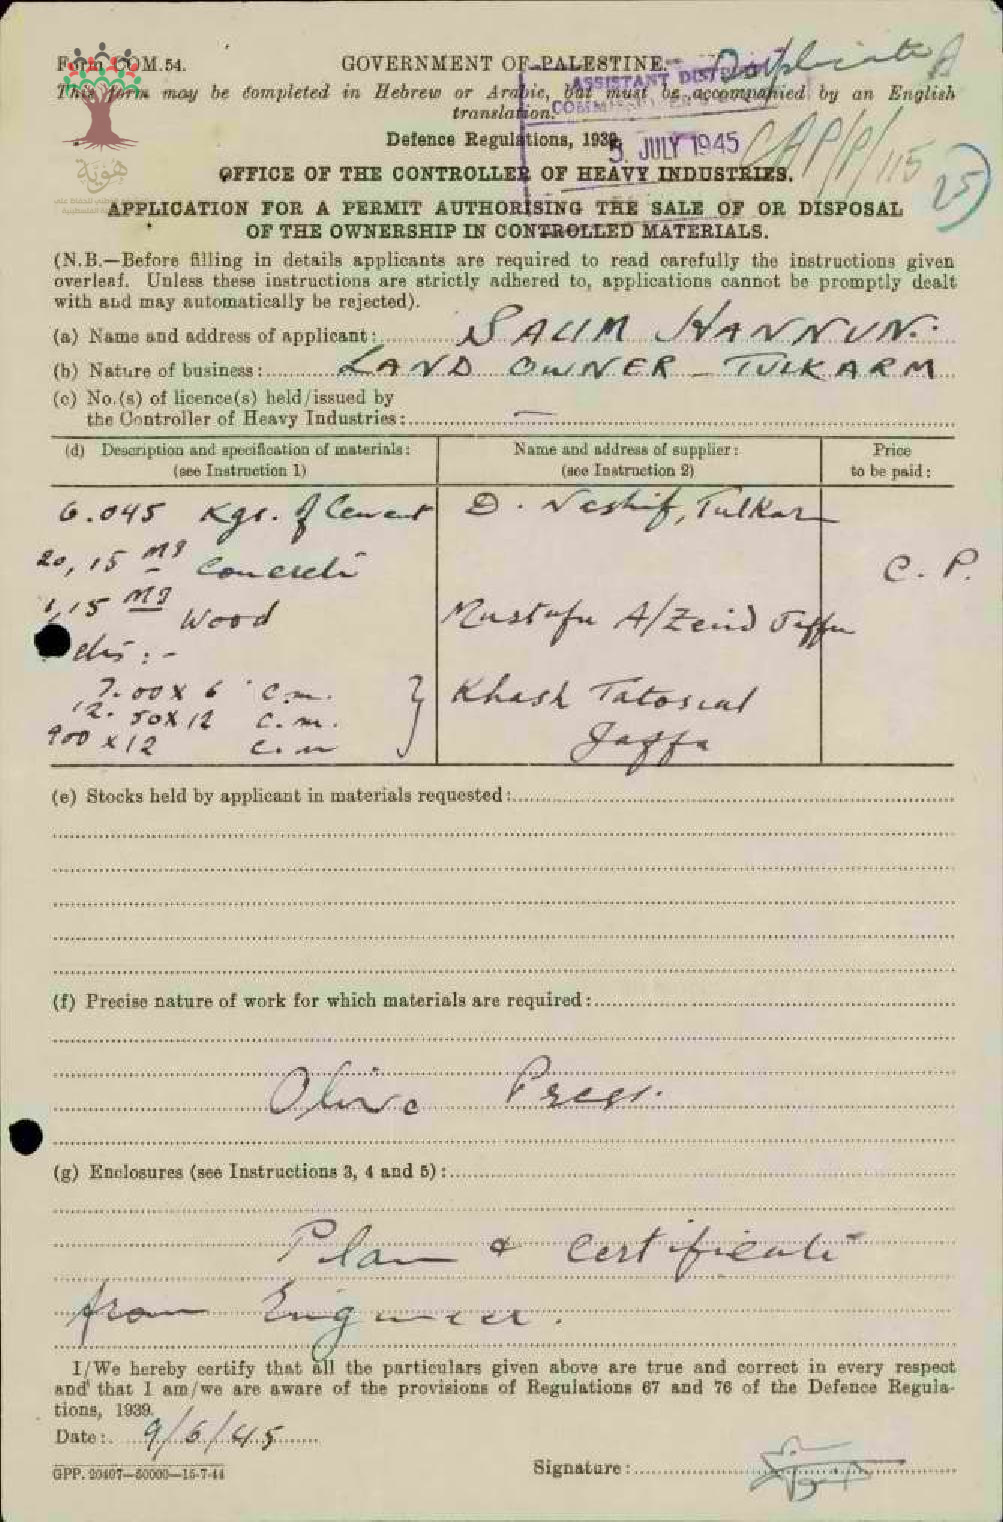 Form COM.54.
GOVERNMENT OF PALESTINE.
Duplicate
This form may be completed in Hebrew or Arabic, but must be accompanied by an English
translation.
ASSISTANT DISTRICT
COMMISSIONER'S
Defence Regulations, 1939.
5 JULY 1945
CAP/P/115
25
هوية
OFFICE OF THE CONTROLLER OF HEAVY INDUSTRIES.
APPLICATION FOR A PERMIT AUTHORISING THE SALE OF OR DISPOSAL
OF THE OWNERSHIP IN CONTROLLED MATERIALS.
(N.B.—Before filling in details applicants are required to read carefully the instructions given
overleaf. Unless these instructions are strictly adhered to, applications cannot be promptly dealt
with and may automatically be rejected).
(a) Name and address of applicant: SALIM HANNUN.
(b) Nature of business: LAND OWNER - TULKARM
(c) No.(s) of licence(s) held/issued by
the Controller of Heavy Industries: —
(d) Description and specification of materials: Name and address of supplier: Price
(see Instruction 1) (see Instruction 2) to be paid:
6.045 Kgs. of Cement D. Neshif, Tulkarm
20,15 M3 Concrete C. P.
1,15 M3 Wood Mustafa A/Zeid Jaffa
7.00 x 6 c.m. Khash Tatosial
12.50 x 12 c.m.
900 x 12 c.m Jaffa
(e) Stocks held by applicant in materials requested:
(f) Precise nature of work for which materials are required:
Olive Press.
(g) Enclosures (see Instructions 3, 4 and 5):
Plan & Certificate
from Engineer.
I/We hereby certify that all the particulars given above are true and correct in every respect
and that I am/we are aware of the provisions of Regulations 67 and 76 of the Defence Regula-
tions, 1939.
Date: 9/6/45
GPP. 20407—50000—15-7-44
Signature: